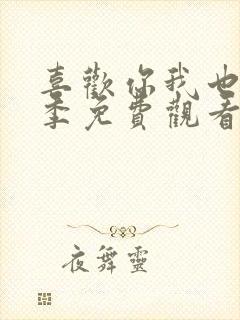 喜歡你我也
季免費觀看
夜舞靈